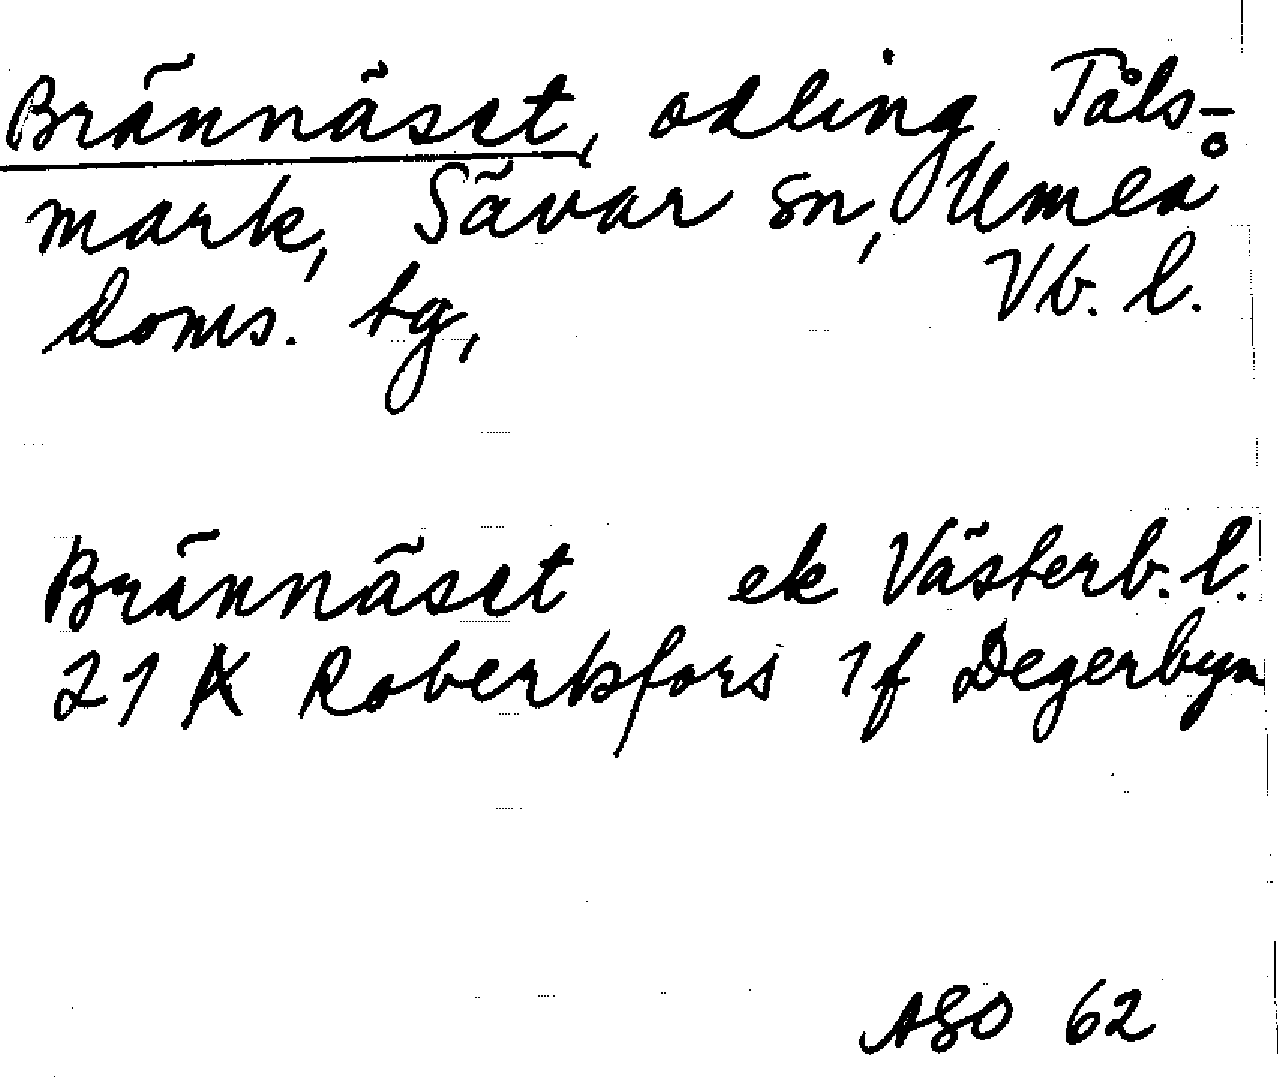 Brännäset, odling Tåls-
mark, Sävar sn, Umeå
doms. tg, Vb. l.
Brännäset ek Västerb. l.
21 K Robertsfors 1f Degerbyn
ASO 62